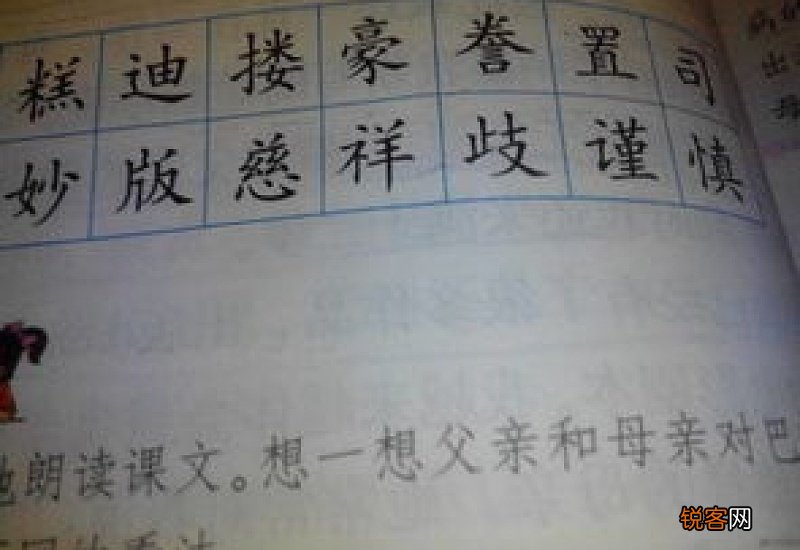 糕 迪 搂 豪 誊 置 司
妙 版 慈 祥 歧 谨 慎
地朗读课文。想一想父亲和母亲对巴
同的看法
出
母
锐客网